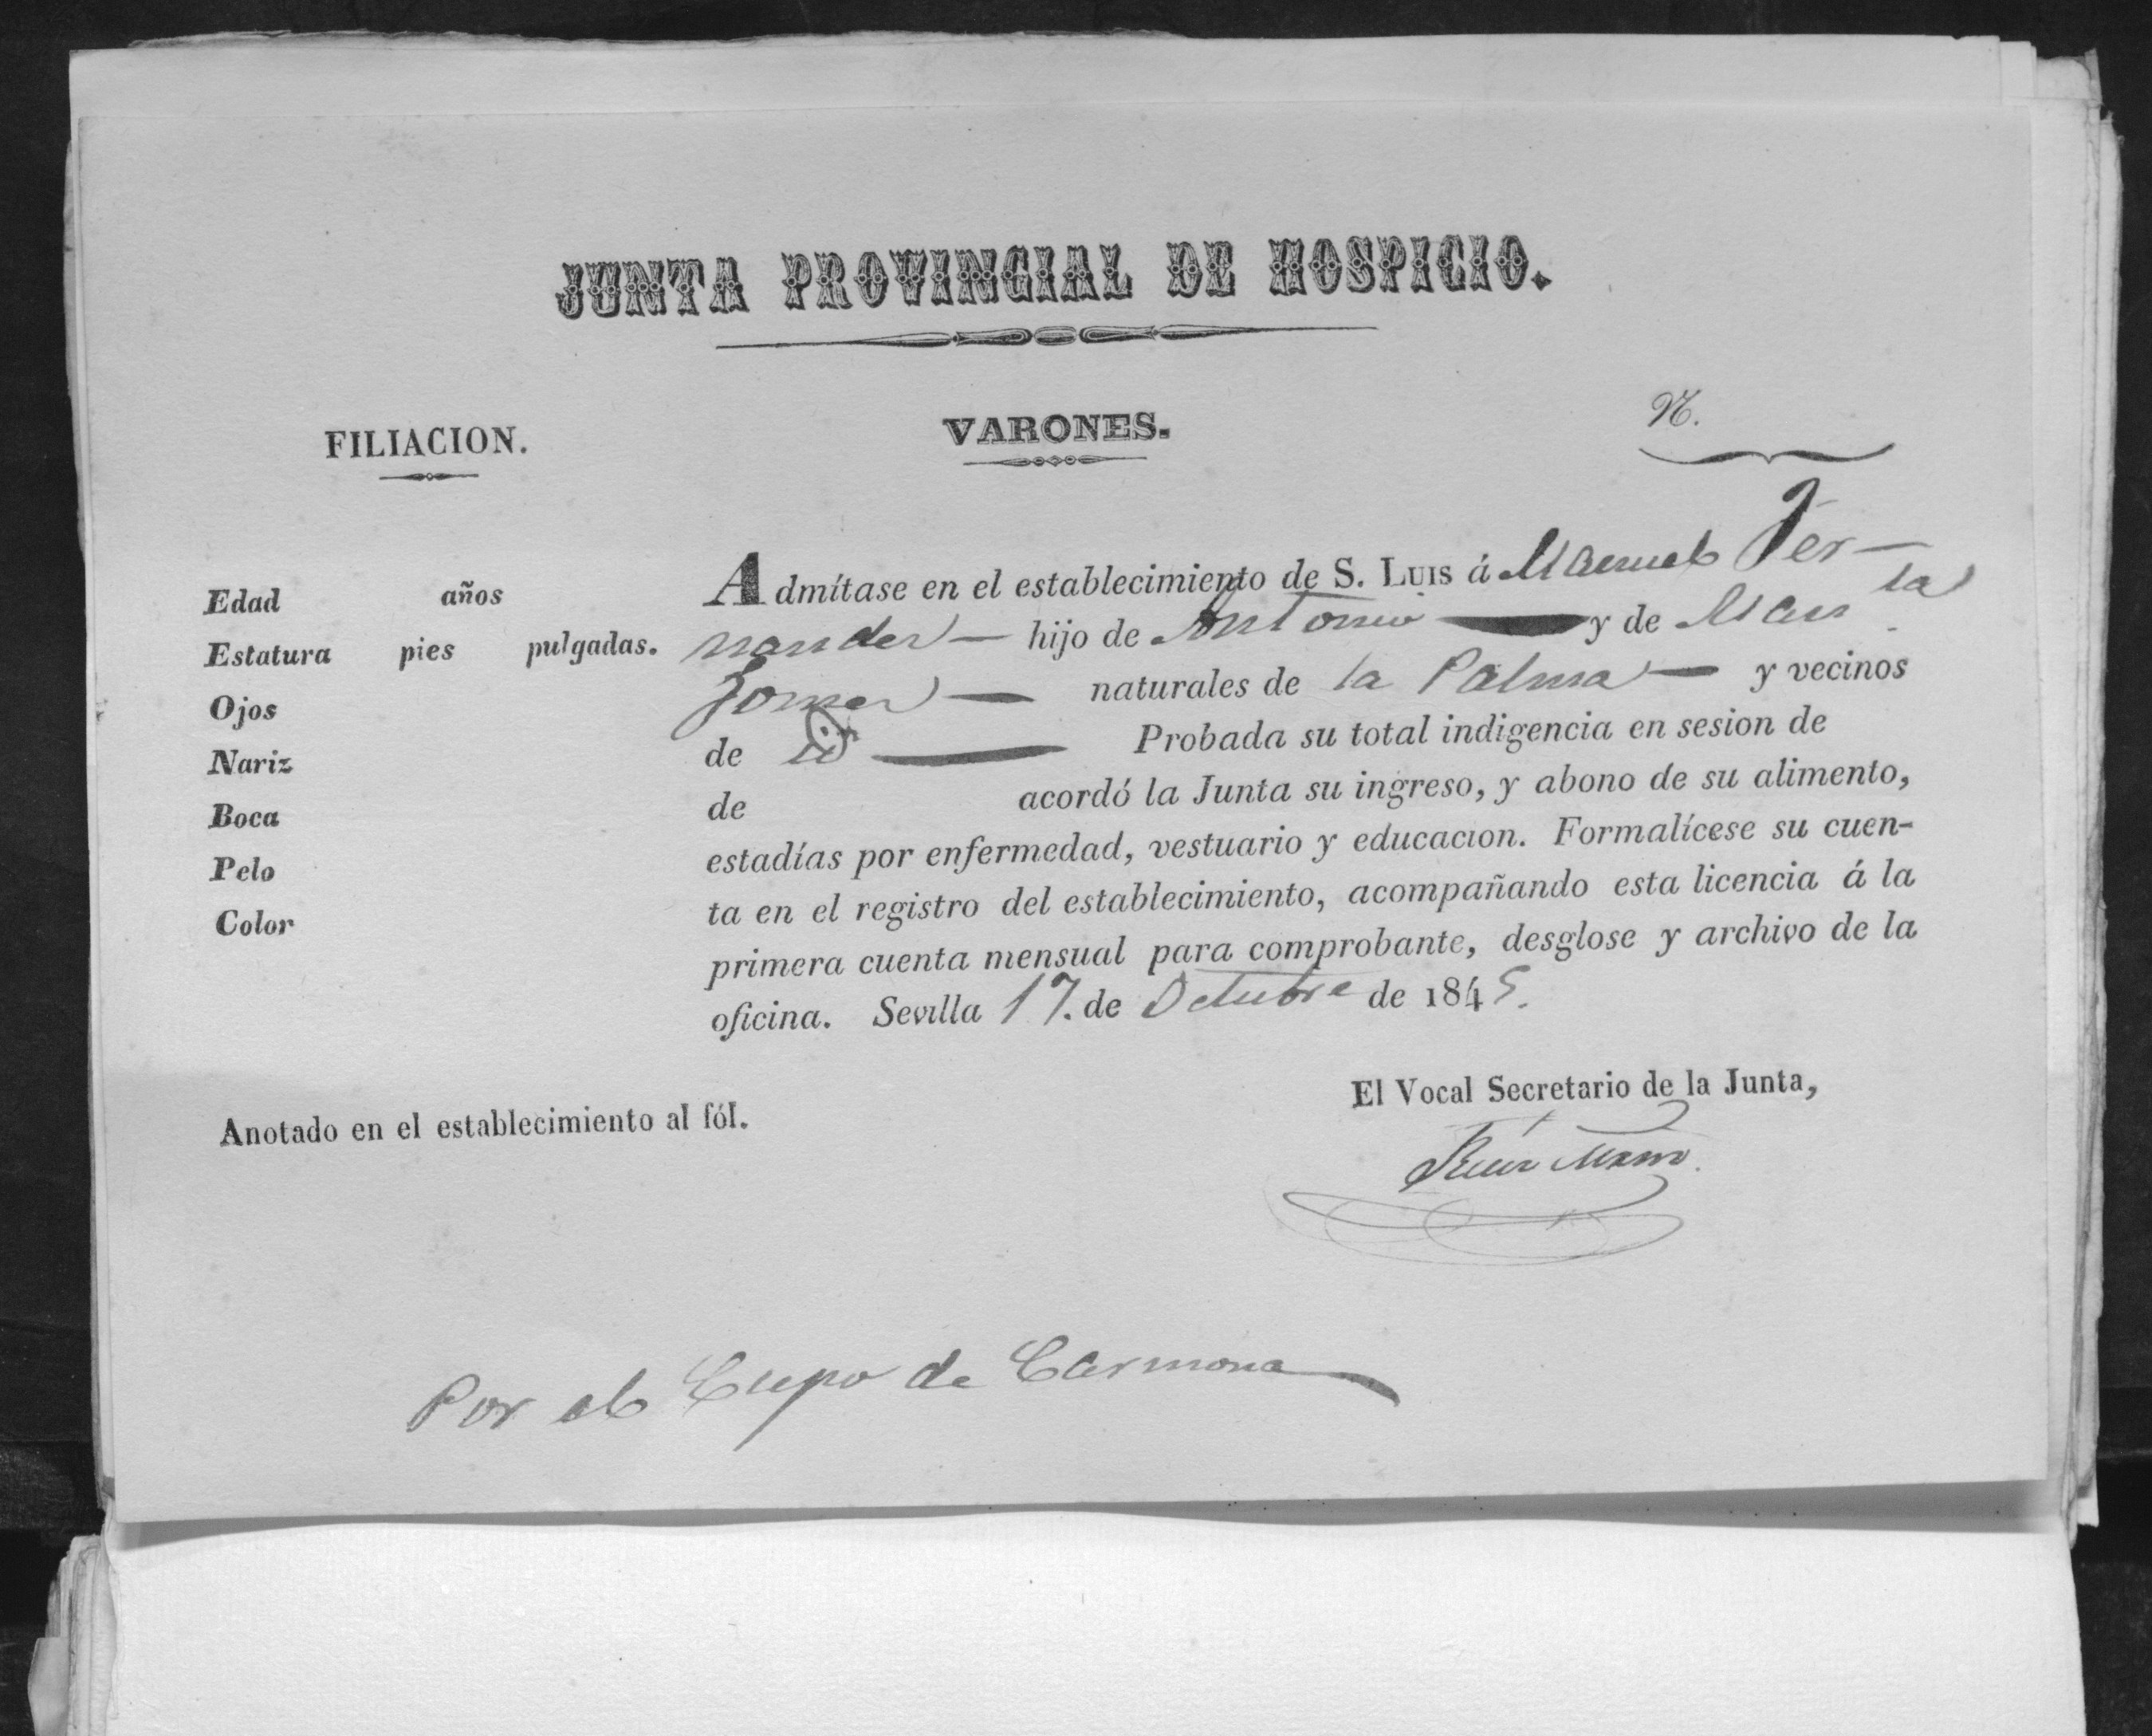 JUNTA PROVINCIAL DE HOSPICIO.
FILIACION.
VARONES.
N.
Edad años
Estatura pies pulgadas.
Ojos
Nariz
Boca
Pelo
Color
Admítase en el establecimiento de S. LUIS á Manuel Fer-
nandez hijo de Antonio y de Maria
Gomez naturales de la Palma y vecinos
de id Probada su total indigencia en sesion de
de acordó la Junta su ingreso, y abono de su alimento,
estadías por enfermedad, vestuario y educacion. Formalícese su cuen-
ta en el registro del establecimiento, acompañando esta licencia á la
primera cuenta mensual para comprobante, desglose y archivo de la
oficina. Sevilla 17. de Octubre de 1845.
El Vocal Secretario de la Junta,
Anotado en el establecimiento al fól.
Por el Cupo de Carmona